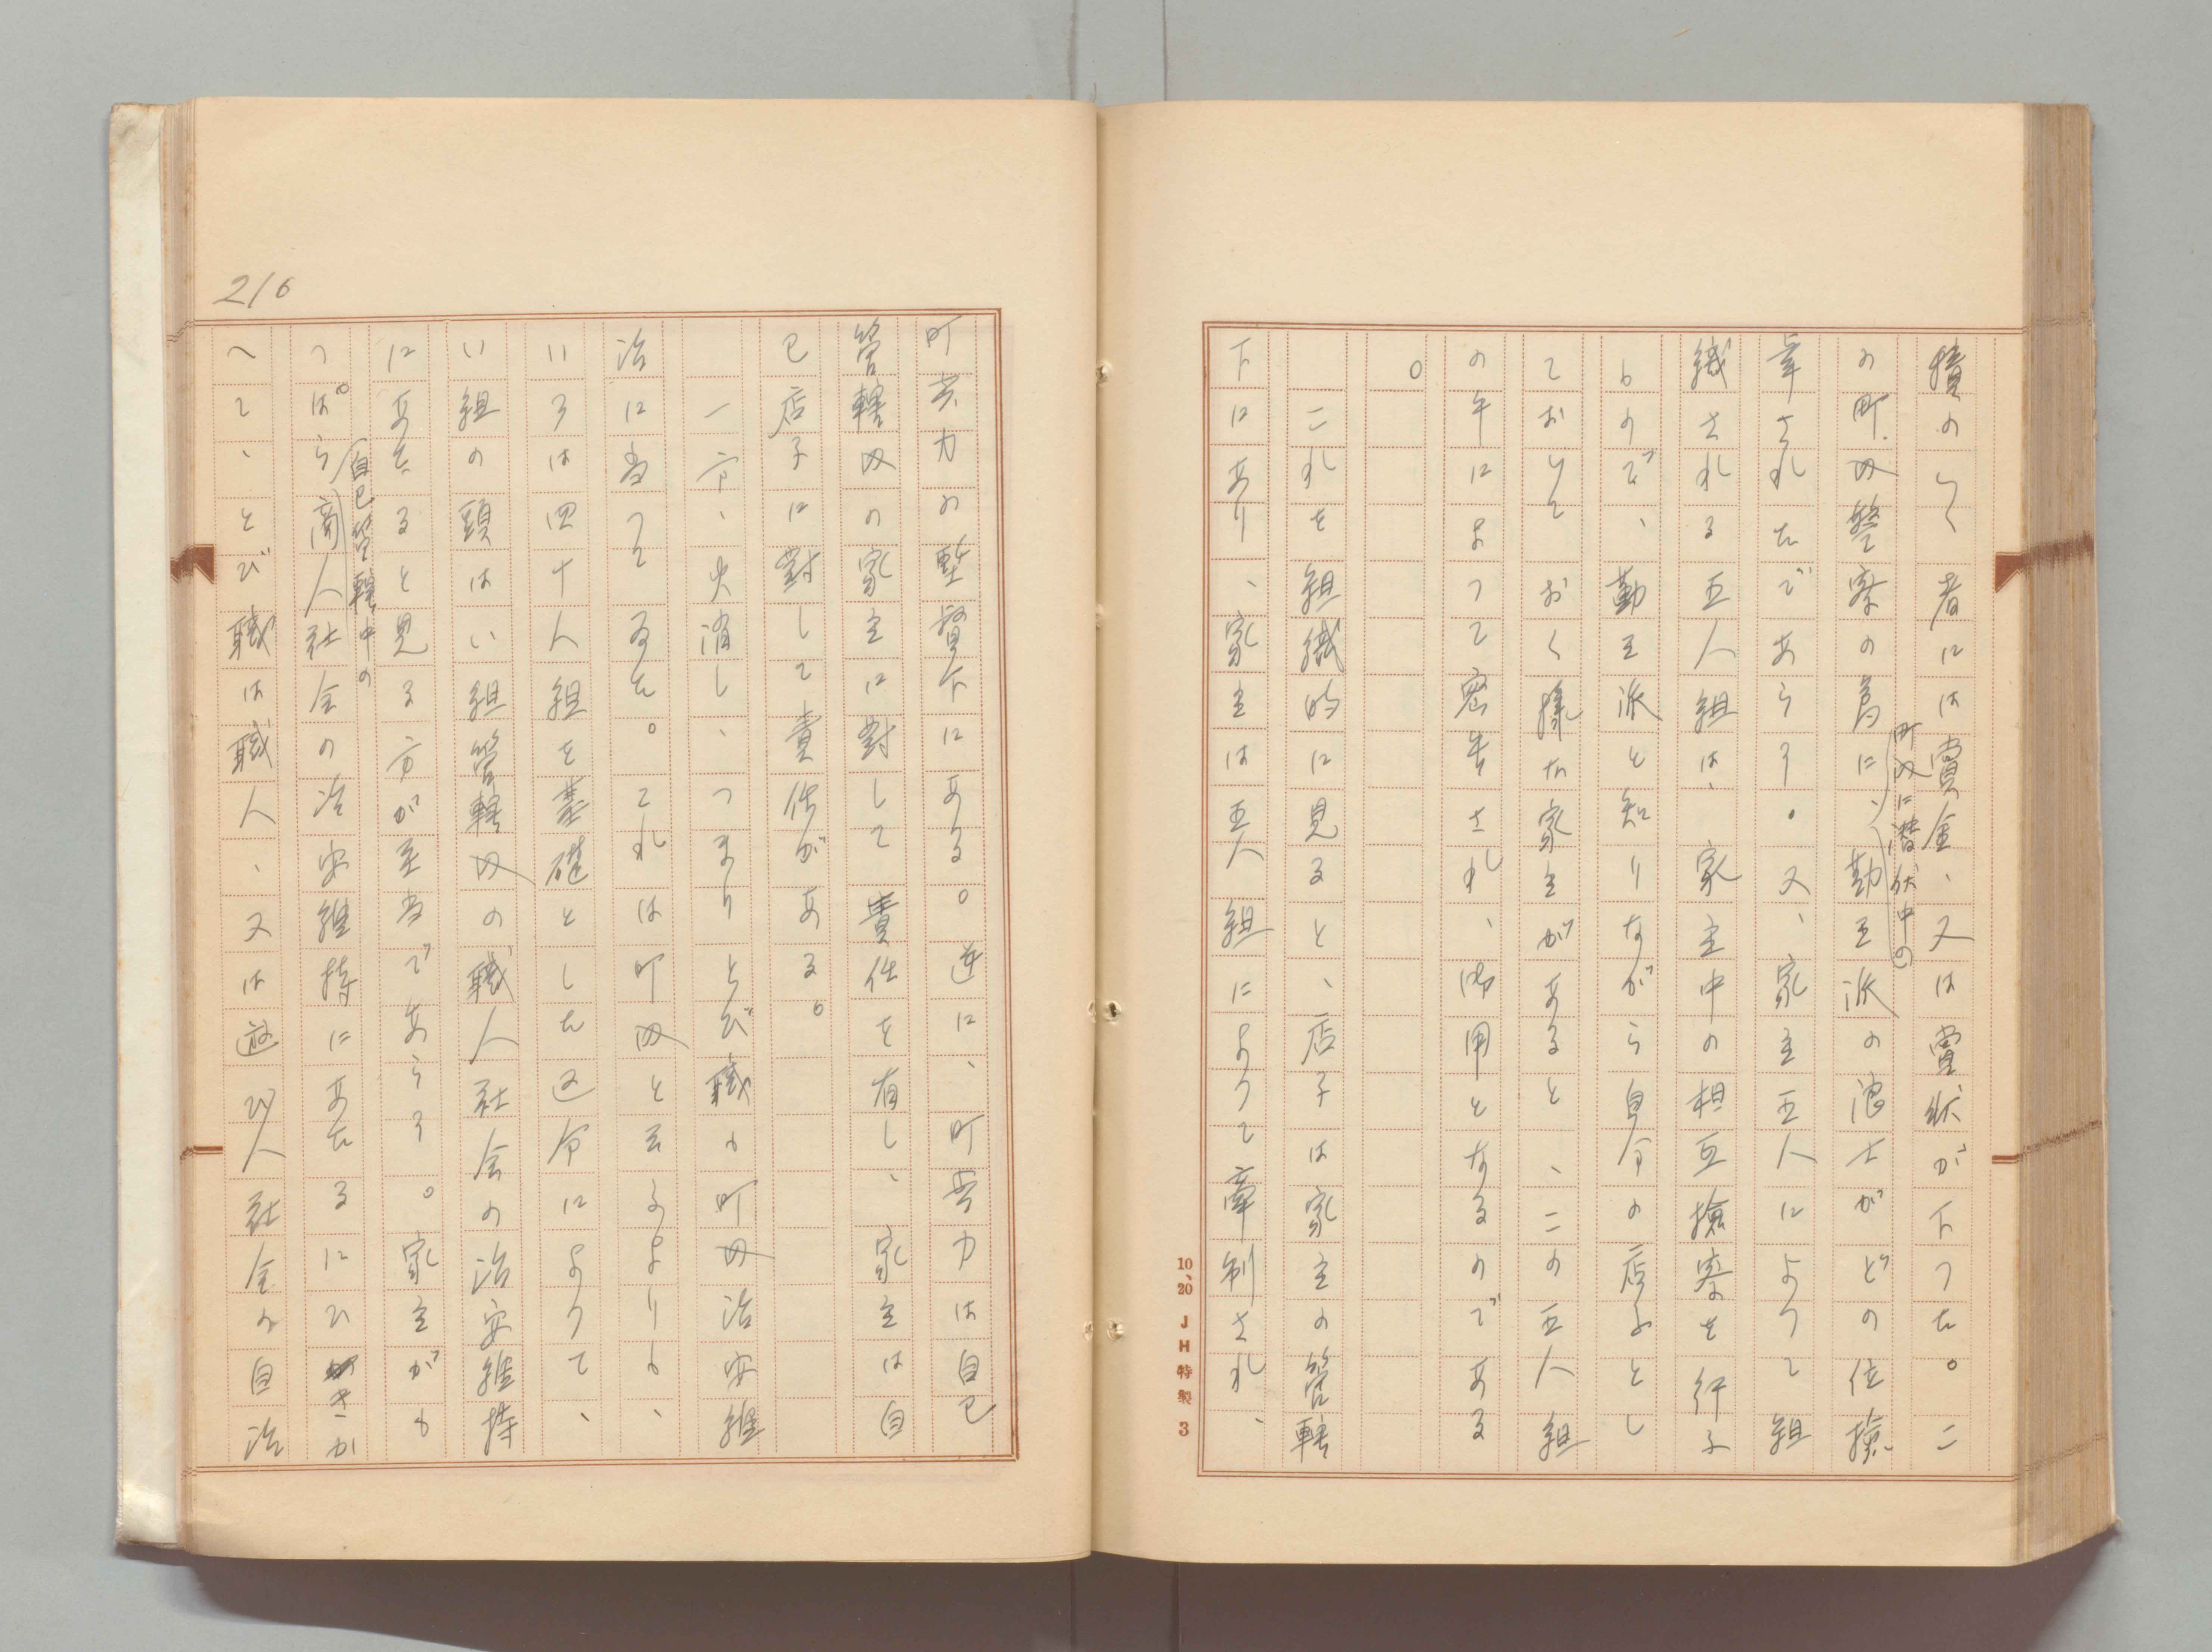 積のいく者には賞金、又は賞状が下つた。こ
の町内警察の為に、勤王派の浪士がどの位検
町内に潜伏中の
挙されたであらう。又、家主五人によつて組
織される五人組は、家主中の相互検察を行ふ
もので、勤王派と知りながら自分の店子とし
ておいておく様な家主があると、この五人組
の手によつて密告され、御用となるのである
。
これを組織的に見ると、店子は家主の管轄
下にあり、家主は五人組によつて牽制され、
10、20 JH特製 3
216
町役力の監督下にある。逆に、町役力は自己
管轄内の家主に對して責任を有し、家主は自
己店子に對して責任がある。
一方、火消し、つまりとび職も町内治安維
治に当つてゐた。これは町内と云ふよりも、
いろは四十八組を基礎とした区分によつて、
い組の頭はい組管轄内の職人社会の治安維持
にあたると見る方が至当であらう。家主がも
自己管轄中の
つぱら商人社会の治安維持にあたるにひきか
へて、とび職は職人、又は遊び人社会の自治